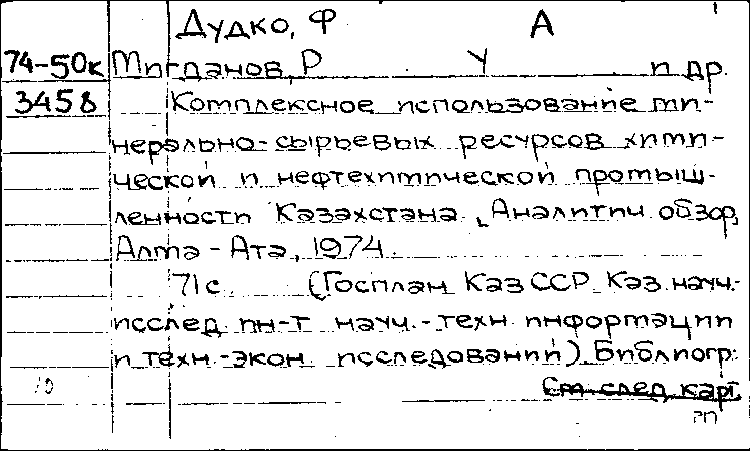 Дудко, Ф А
74-50к Мигданов, Р У и др.
3458 Комплексное использование ми-
нерально-сырьевых ресурсов хими-
ческой и нефтехимической промыш-
ленности Казахстана. Аналитич. обзор,
Алма-Ата, 1974.
71с. (Госплан КазССР. Каз. науч.-
исслед. ин-т науч.-техн. информации
и техн.-экон. исследований). Библиогр:
См. след. карт.